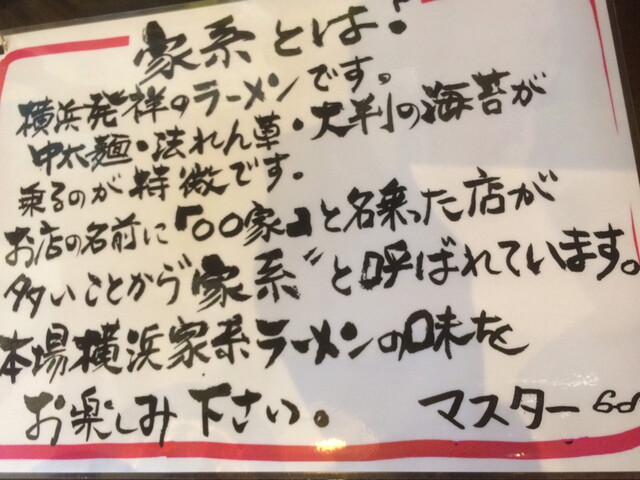 家系とは！
横浜発祥のラーメンです。
中太麺・法れん草・大判の海苔が
乗るのが特徴です。
お店の名前に『〇〇家』と名乗った店が
多いことから"家系"と呼ばれています。
本場横浜家系ラーメンの味を
お楽しみ下さい。 マスター